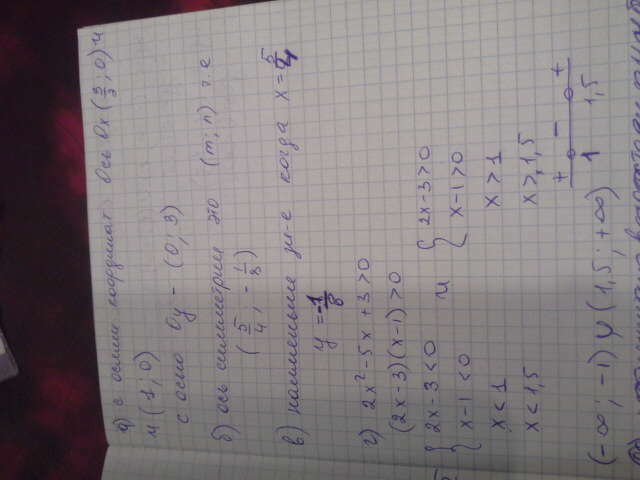 а) с осями координат Ось Ox (3/3; 0) и
и (1; 0)
с осью Oy - (0; 3)
б) ось симметрии это (m; n) т.е
(5/4; -1/8)
в) наименьше зн-е когда x = 5/4
y = -1/8
г) 2x² - 5x + 3 > 0
(2x - 3)(x - 1) > 0
{ 2x - 3 < 0 и { 2x - 3 > 0
x - 1 < 0 x - 1 > 0
x < 1 x > 1
x < 1,5 x > 1,5
+ - +
1 1,5
(-∞; -1) ∪ (1,5; +∞)